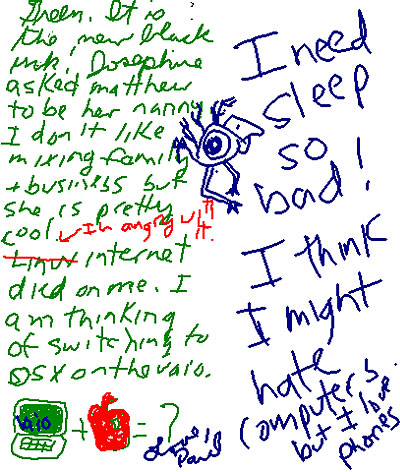 Green. It is
the new black
ink! Josephine
asked matthew
to be her nanny
I don't like
mixing family
+ business but
she is pretty
cool.
I'm angry with it.
Linux internet
died on me. I
am thinking
of switching to
OSX on the vaio.
vaio + = ?
I need
sleep
so
bad!
I think
I might
hate
computers
but I love
phones
Love,
David